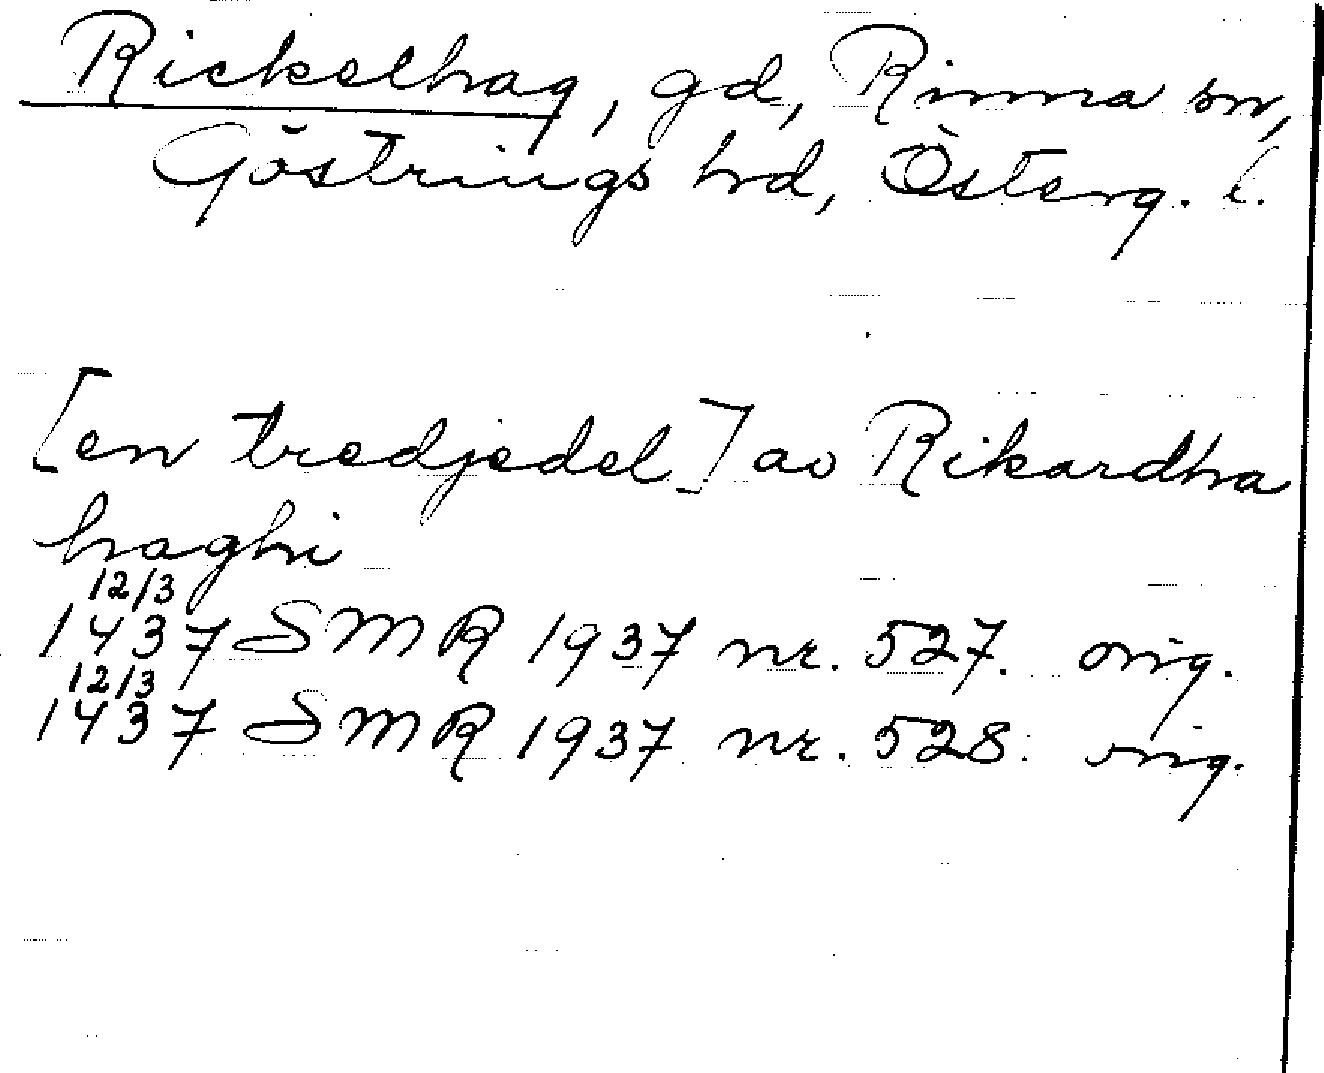 Rickelhag, gd, Rinna sn,
Göstrings hrd, Österg. l.
[en tredjedel] av Rikardha
haghi
12/3
1437 SMR 1937 nr. 527. orig.
12/3
1437 SMR 1937 nr. 528. orig.